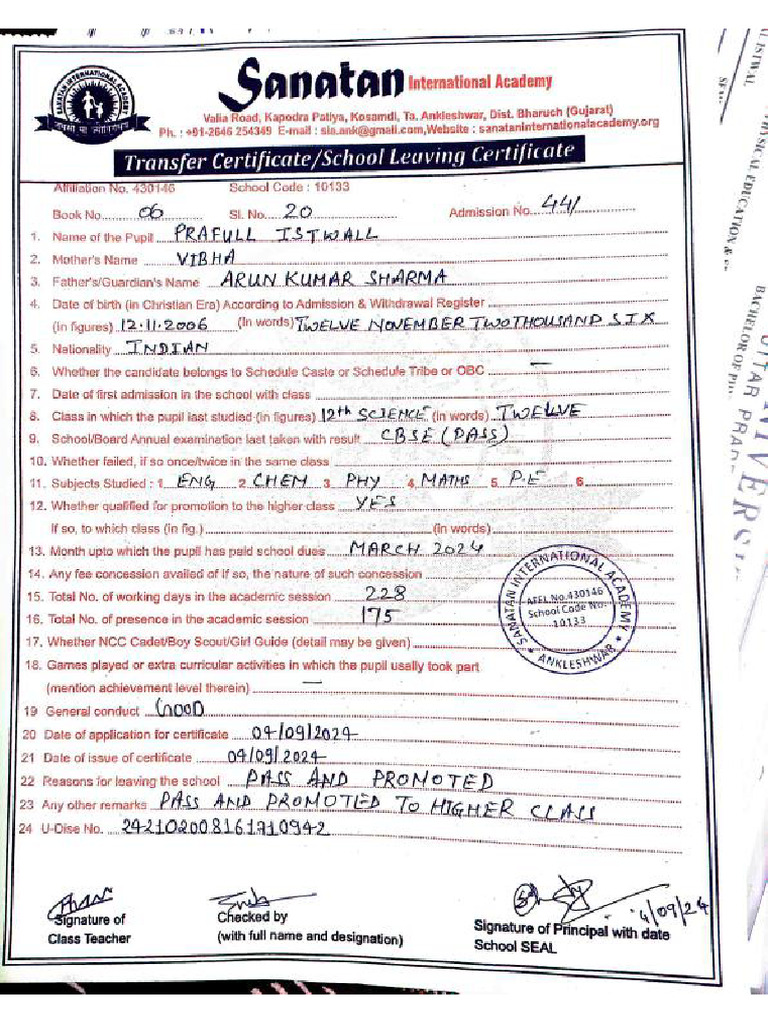 Sanatan International Academy
Valia Road, Kapodra Patiya, Kosamdi, Ta. Ankleshwar, Dist. Bharuch (Gujarat)
Ph. : +91-2646 254369 E-mail : sia.ank@gmail.com,Website : sanataninternationalacademy.org
SANATAN INTERNATIONAL ACADEMY
Transfer Certificate/School Leaving Certificate
Affiliation No. 430146 School Code : 10133
Book No. 06 Sl. No. 20 Admission No. 441
1. Name of the Pupil PRAFULL ISTWALL
2. Mother's Name VIBHA
3. Father's/Guardian's Name ARUN KUMAR SHARMA
4. Date of birth (in Christian Era) According to Admission & Withdrawal Register
(In figures) 12.11.2006 (In words) TWELVE NOVEMBER TWO THOUSAND SIX
5. Nationality INDIAN
6. Whether the candidate belongs to Schedule Caste or Schedule Tribe or OBC —
7. Date of first admission in the school with class
8. Class in which the pupil last studied (in figures) 12th SCIENCE (in words) TWELVE
9. School/Board Annual examination last taken with result CBSE (PASS)
10. Whether failed, if so once/twice in the same class
11. Subjects Studied : 1. ENG 2. CHEM 3. PHY 4. MATHS 5. P.E 6.
12. Whether qualified for promotion to the higher class YES
If so, to which class (in fig.) (in words)
13. Month upto which the pupil has paid school dues MARCH 2024
14. Any fee concession availed of if so, the nature of such concession
15. Total No. of working days in the academic session 228
16. Total No. of presence in the academic session 175
17. Whether NCC Cadet/Boy Scout/Girl Guide (detail may be given)
18. Games played or extra curricular activities in which the pupil usally took part
(mention achievement level therein) —
19 General conduct GOOD
20 Date of application for certificate 04/09/2024
21 Date of issue of certificate 04/09/2024
22 Reasons for leaving the school PASS AND PROMOTED
23 Any other remarks PASS AND PROMOTED TO HIGHER CLASS
24 U-Dise No. 242102008161710942
SANATAN INTERNATIONAL ACADEMY
AFFI.No.430146
School Code No-
10133
* ANKLESHWAR *
Signature of
Class Teacher
Checked by
(with full name and designation)
4/09/24
Signature of Principal with date
School SEAL
PHYSICAL EDUCATION &
BACHELOR OF